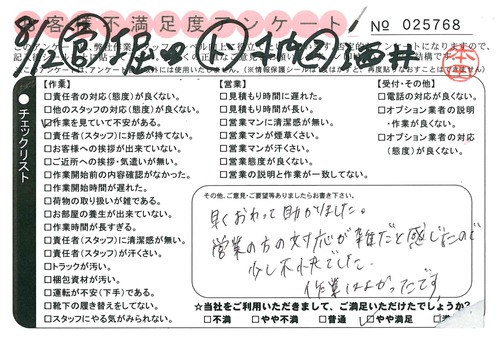 お客様不満足度アンケート
No 025768
チェックリスト
【作業】
□責任者の対応(態度)が良くない。
□他のスタッフの対応(態度)が良くない。
作業を見ていて不安がある。
□責任者(スタッフ)に好感が持てない。
□お客様への挨拶が出来ていない。
□ご近所への挨拶・気遣いが無い。
□作業開始前の内容確認がなかった。
□作業開始時間が遅れた。
□荷物の取り扱いが雑である。
□お部屋の養生が出来ていない。
□作業時間が長すぎる。
□責任者(スタッフ)に清潔感が無い。
□責任者(スタッフ)が汗くさい。
□トラックが汚い。
□梱包資材が汚い。
□運転が不安(下手)である。
□靴下の履き替えをしてない。
□スタッフにやる気がみられない。
【営業】
□見積もり時間に遅れた。
□見積もり時間が長い。
□営業マンに清潔感が無い。
□営業マンが煙草くさい。
□営業マンが汗くさい。
□営業態度が良くない。
□営業の説明と作業が一致してない。
【受付・その他】
□電話の対応が良くない。
□オプション業者の説明
・作業が良くない。
□オプション業者の対応
(態度)が良くない。
その他、ご意見・ご要望等ありましたらお書き下さい。
早くおわって助かりました。
営業の方の対応が雑だと感じたので
少し不快でした。
作業はよかったです。
☆当社をご利用いただきまして、ご満足いただけたでしょうか?
□不満 □やや不満 □普通 □やや満足